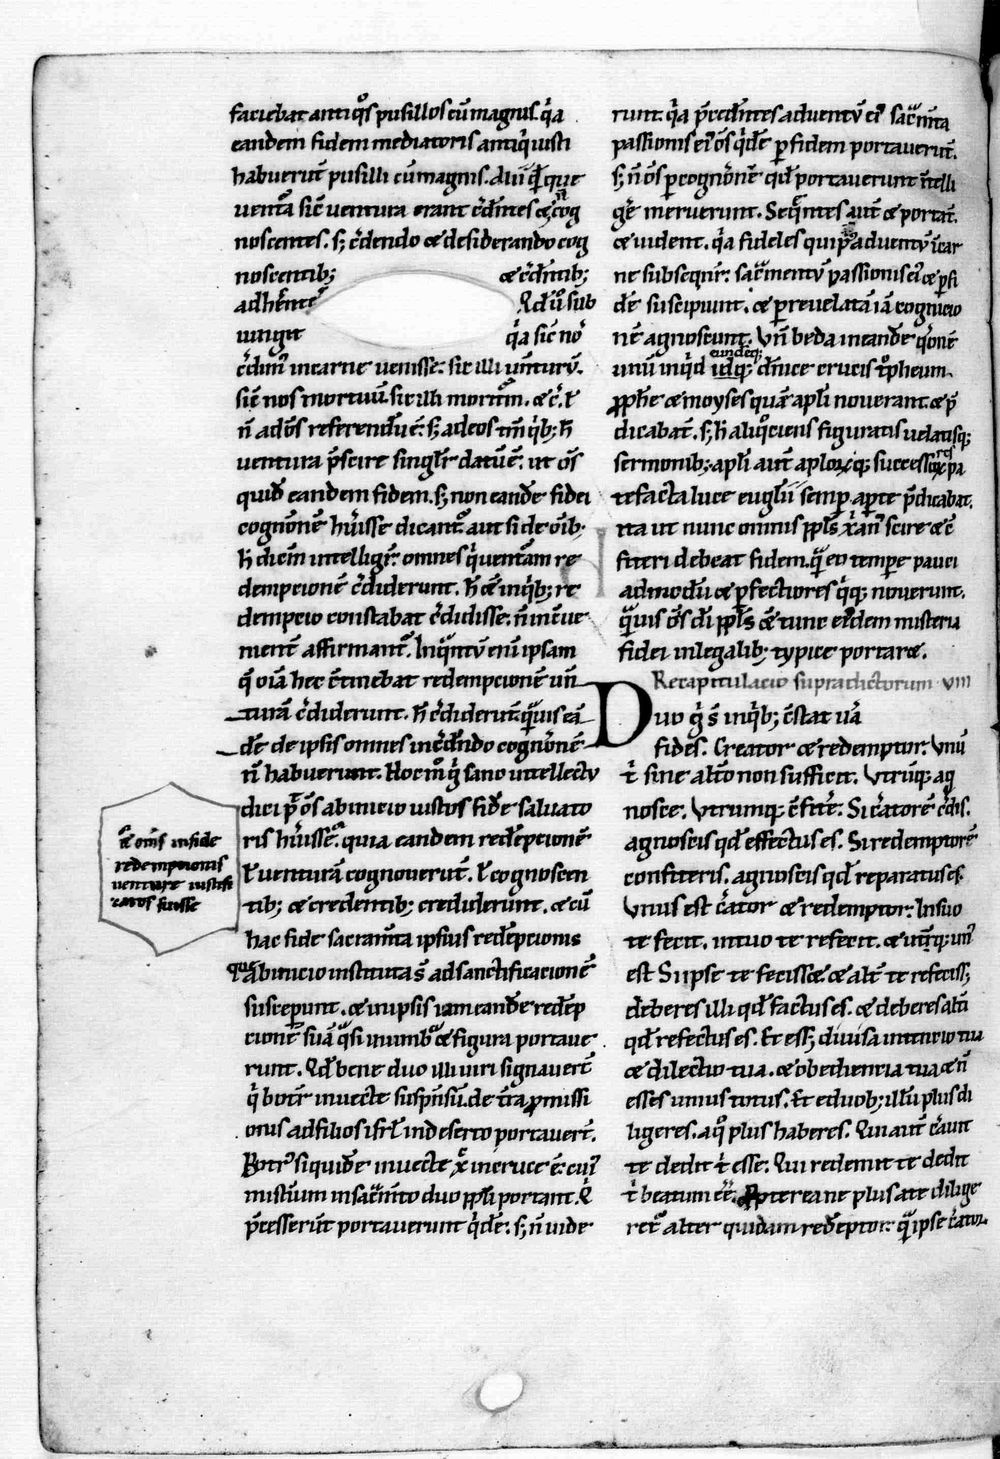 faciebat antiq̊s pusillos cū magnis. q̇a
eandem fidem mediatoris antiq̇ iusti
habuerūt pusilli cū magnis.
uentā sic̄ uentura erant c̄dentes & cog
noscentes. s; c̄dendo & desiderando cog
noscentib; & c̄dentib;
adherente Qd̄ ū sub
iungit q̇a sic̄ nos
c̄dim᷒ incarne uenisse: sic illi uentur̄.
sic̄ nos mortuū. sic illi moritur̄.
n̄ ad oēs referendū ē: s; ad eos tm̄ q̇b; h̄
uentura p̄scire singlr̄ datū ē: ut oēs
quidē eandem fidem. s; non eandē fidei
cognonē h̄uisse dicant᷒. aut si de oīb;
h̄ dicm̄ intelligit᷒: omnes q̇ uentām re
dempcionē c̄diderunt. h̄ ē inq̇b; re
dempcio constabat c̄didisse: n̄ incue
nient᷒ affirmant᷒. Inq̄ntū enī ipsam
q̄ oīa hec c̄tinebat redempcionē uen
turā c̄diderunt. h̄ c̄diderūt: q̄uis eā
dē de ipsis omnes inc̄dendo cognonē
n̄ habuerunt. Hoc m̊ q̇ sano intellectu
dici p̄t oēs ab inicio iustos fidē saluato
ris h̄uisse: quia eandem redēpcionē
ł uenturā cognouerunt. ł cognoscen
tib; & credentib; crediderunt. & cū
hac fide sacramta ipsius redēpcionis
que ab inicio instituta s̄ ad sanctificacionē
susceperunt. & in ipsis iam eandē redēp
cionē suā q̇si in umb̄ & figura portaue
runt. Qd̄ bene duo illi uiri signauert̄
q̇ botr̄ inuecte suspēsū. de tra pmissi
onis ad filios isrl̄ in deserto portauert̄.
Botr᷒ siquidē in uecte x̄ in cruce ē: cui᷒
mistium in sac̄mto duo ppl̄i portant. Q̇
p̄cesserūt portauerunt q̇dē: s; n̄ uide
ē omīs in fide
redempcionis
uenture iustifi
catos fuisse
runt. q̇a p̄cedentes aduentū ei᷒ sac̄mta
passionis ei᷒ oēs q̇dē p fidem portauerūt.
s; n̄ oēs p cognonē qd̄ portauerunt intelli
gere meruerunt. Seq̄ntes aut̄ & portant.
& uident. q̇a fideles qui p᷒ aduentū icar
ne subsequnt᷒: sac̄mentū passionis ei᷒ & p fi
dē suscipiunt. & p reuelatā iā cognicio
nē agnoscunt. Vn̄ beda in eandē q̊nē
unū inq̇d idq; eundeq; dn̄ice crucis t̊pheum.
pphe & moyses quā apli nouerant. & p̄
dicabant. s; h̄ aliq̊ciens figuratis uelatisq;
sermonib; apli aut̄ aploꝝq; successores pa
tefacta luce euglīi semp apte p̄dicabat.
ita ut nunc omnis ppl̄s x̄an᷒ scire & c̄
fiteri debeat fidem. q̄ eo tempe pauci
admodū & pfectiores q̇q; nouerunt.
q̄uis oēs di ppl̄s & tunc eidem misteria
fidei in legalib; typice portaret.
Recapitulacio supradictorum viii
Duo q̇ s̄ inq̇b; c̄stat uā
fides. Creator & redemptor. Vnū
t̄ sine alto non sufficit. Vtrūq; ag
nosce. Vtrumq; c̄fite. Si c̄atorē c̄dis.
agnoscis qd̄ effectus es. Si redemptorē
confiteris. agnoscis qd̄ reparatus es.
Vnus est c̄ator & redemptor. In suo
te fecit. in tuo te refecit. & utq; un᷒
est Si ipse te fecisset & alt᷒ te refecisset;
deberes illi qd̄ factus es. & deberes altī
qd̄ refectus es. Et esset diuisa intencio tua
& dilectio tua. & obediencia tua & n̄
esses unius totus. Et e duob; illū plus di
ligeres. a q̊ plus haberes. Qui aut̄ c̄auit
te dedit t̄ esse: Qui redemit te dedit
t̄ beatum ēē. Ppterea ne plus a te dilige
ret᷒ alter quidam redēptor: q̄ ipse c̄ator.